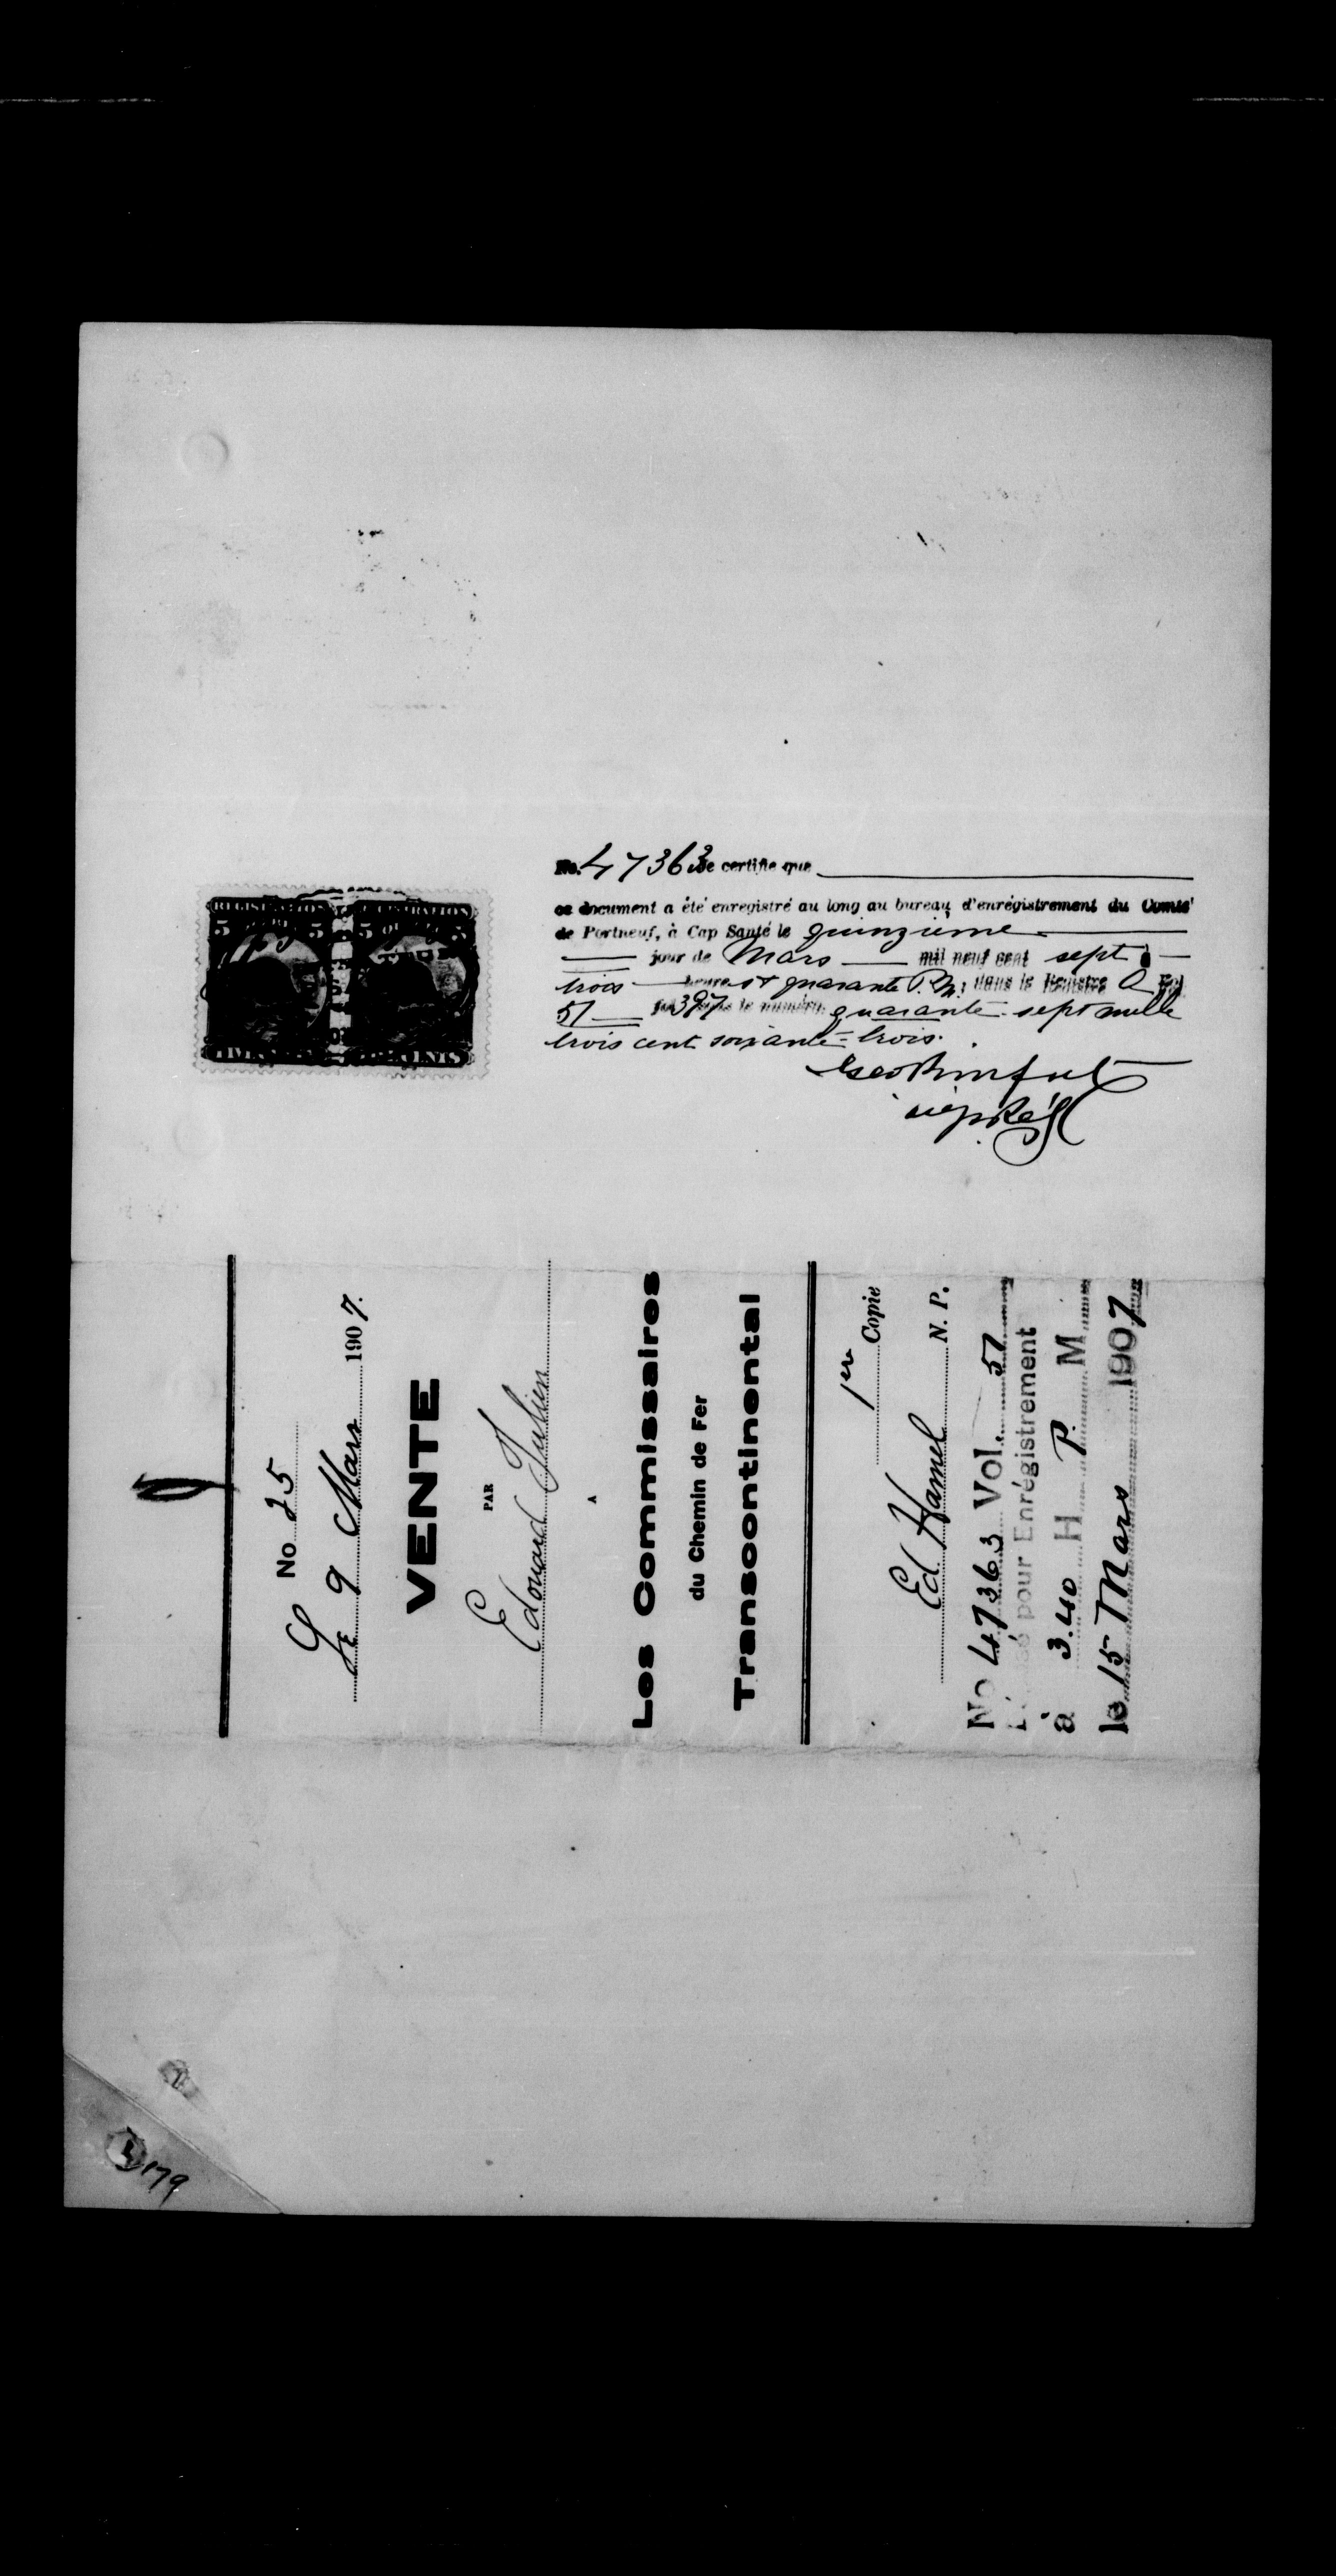 REGISTRATION
5 5 5 5
FIVE CENTS
No. 47363 Je certifie que
ce document a été enregistré au long au bureau d'enrégistrement du Comté
de Portneuf, à Cap Santé le quinzième
jour de Mars mil neuf cent sept à
trois heures et quarante P.M. dans le Registre
51 397 le numéro quarante-sept mille
trois cent soixante-trois.
No 25
Le 9 Mars 1907.
VENTE
PAR
Edouard Julien
A
Les Commissaires
du Chemin de Fer
Transcontinental
1re Copie
Ed. Hamel N. P.
No 47363 Vol. 51
pour Enrégistrement
à 3.40 H P. M
le 15 Mars 1907
179